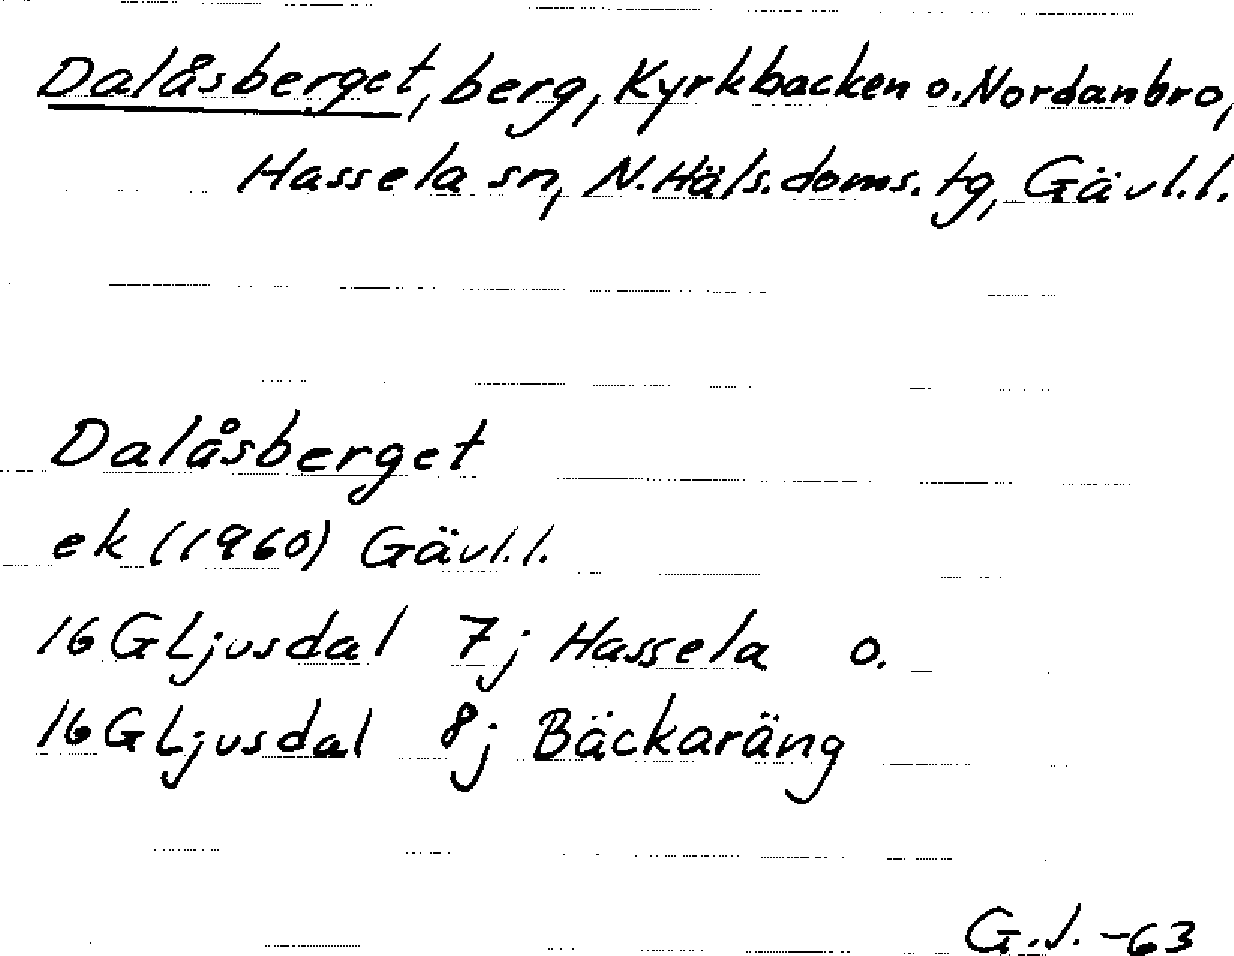 Dalåsberget, berg, Kyrkbacken o. Nordanbro,
Hassela sn, N. Häls. doms. tg, Gävl. l.
Dalåsberget
ek (1960) Gävl. l.
16G Ljusdal 7j Hassela o.
16G Ljusdal 8j Bäckaräng
G.J. -63